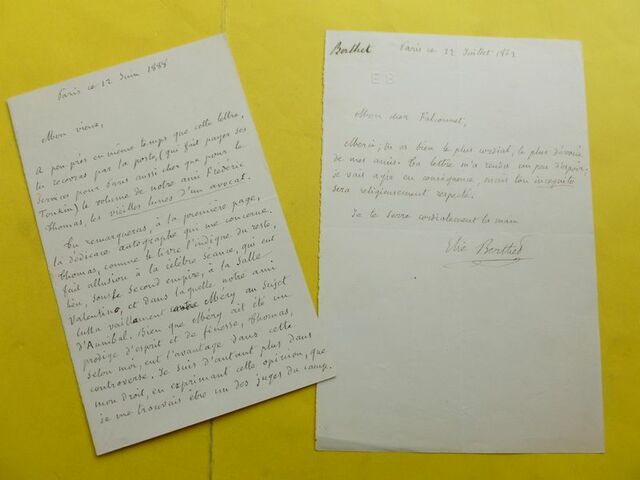 Paris ce 12 Juin 1888
Mon vieux,
A peu près en même temps que cette lettre,
tu recevras par la poste, (qui fait payer ses
services pour Paris aussi cher que pour le
Tonkin) le volume de notre ami Frédéric
Thomas, les vieilles lunes d'un avocat.
Tu remarqueras, à la première page,
la dédicace autographe qui me concerne.
Thomas, comme le livre l'indique du reste,
fait allusion à la célèbre séance, qui eut
lieu, sous le second empire, à la Salle
Valentino, et dans laquelle notre ami
lutta vaillament contre Méry au Sujet
d'Annibal. Bien que Méry ait été un
prodige d'esprit et de finesse, Thomas,
selon moi, eut l'avantage dans cette
controverse. Je suis d'autant plus dans
mon droit, en exprimant cette opinion, que
je me trouvais être un des juges du camp.
Berthet
Paris ce 22 Juillet
EB
Mon cher
Merci; tu es bien le plus cordial, le plus dévoué
de mes amis. Ta lettre m'a rendu un peu d'espoir.
je vais agir en conséquence, mais ton incognito
sera religieusement respecté.
Je te serre cordialement la main
Elie Berthet